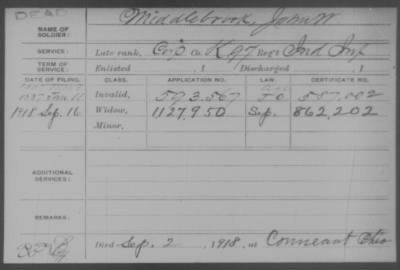 DEAD
NAME OF SOLDIER: Middlebrook, John W.
SERVICE: Late rank, Corp Co. K, 97 Reg't Ind Inf
TERM OF SERVICE: Enlisted , 1 Discharged , 1
DATE OF FILING. CLASS. APPLICATION NO. LAW. CERTIFICATE NO.
1887 Jan Invalid, 593.567 587.002
1918 Sep. 16 Widow, 1127,950 Sep. 862,202
Minor,
ADDITIONAL SERVICES:
REMARKS:
Died Sep. 2, 1918, at Conneaut Ohio